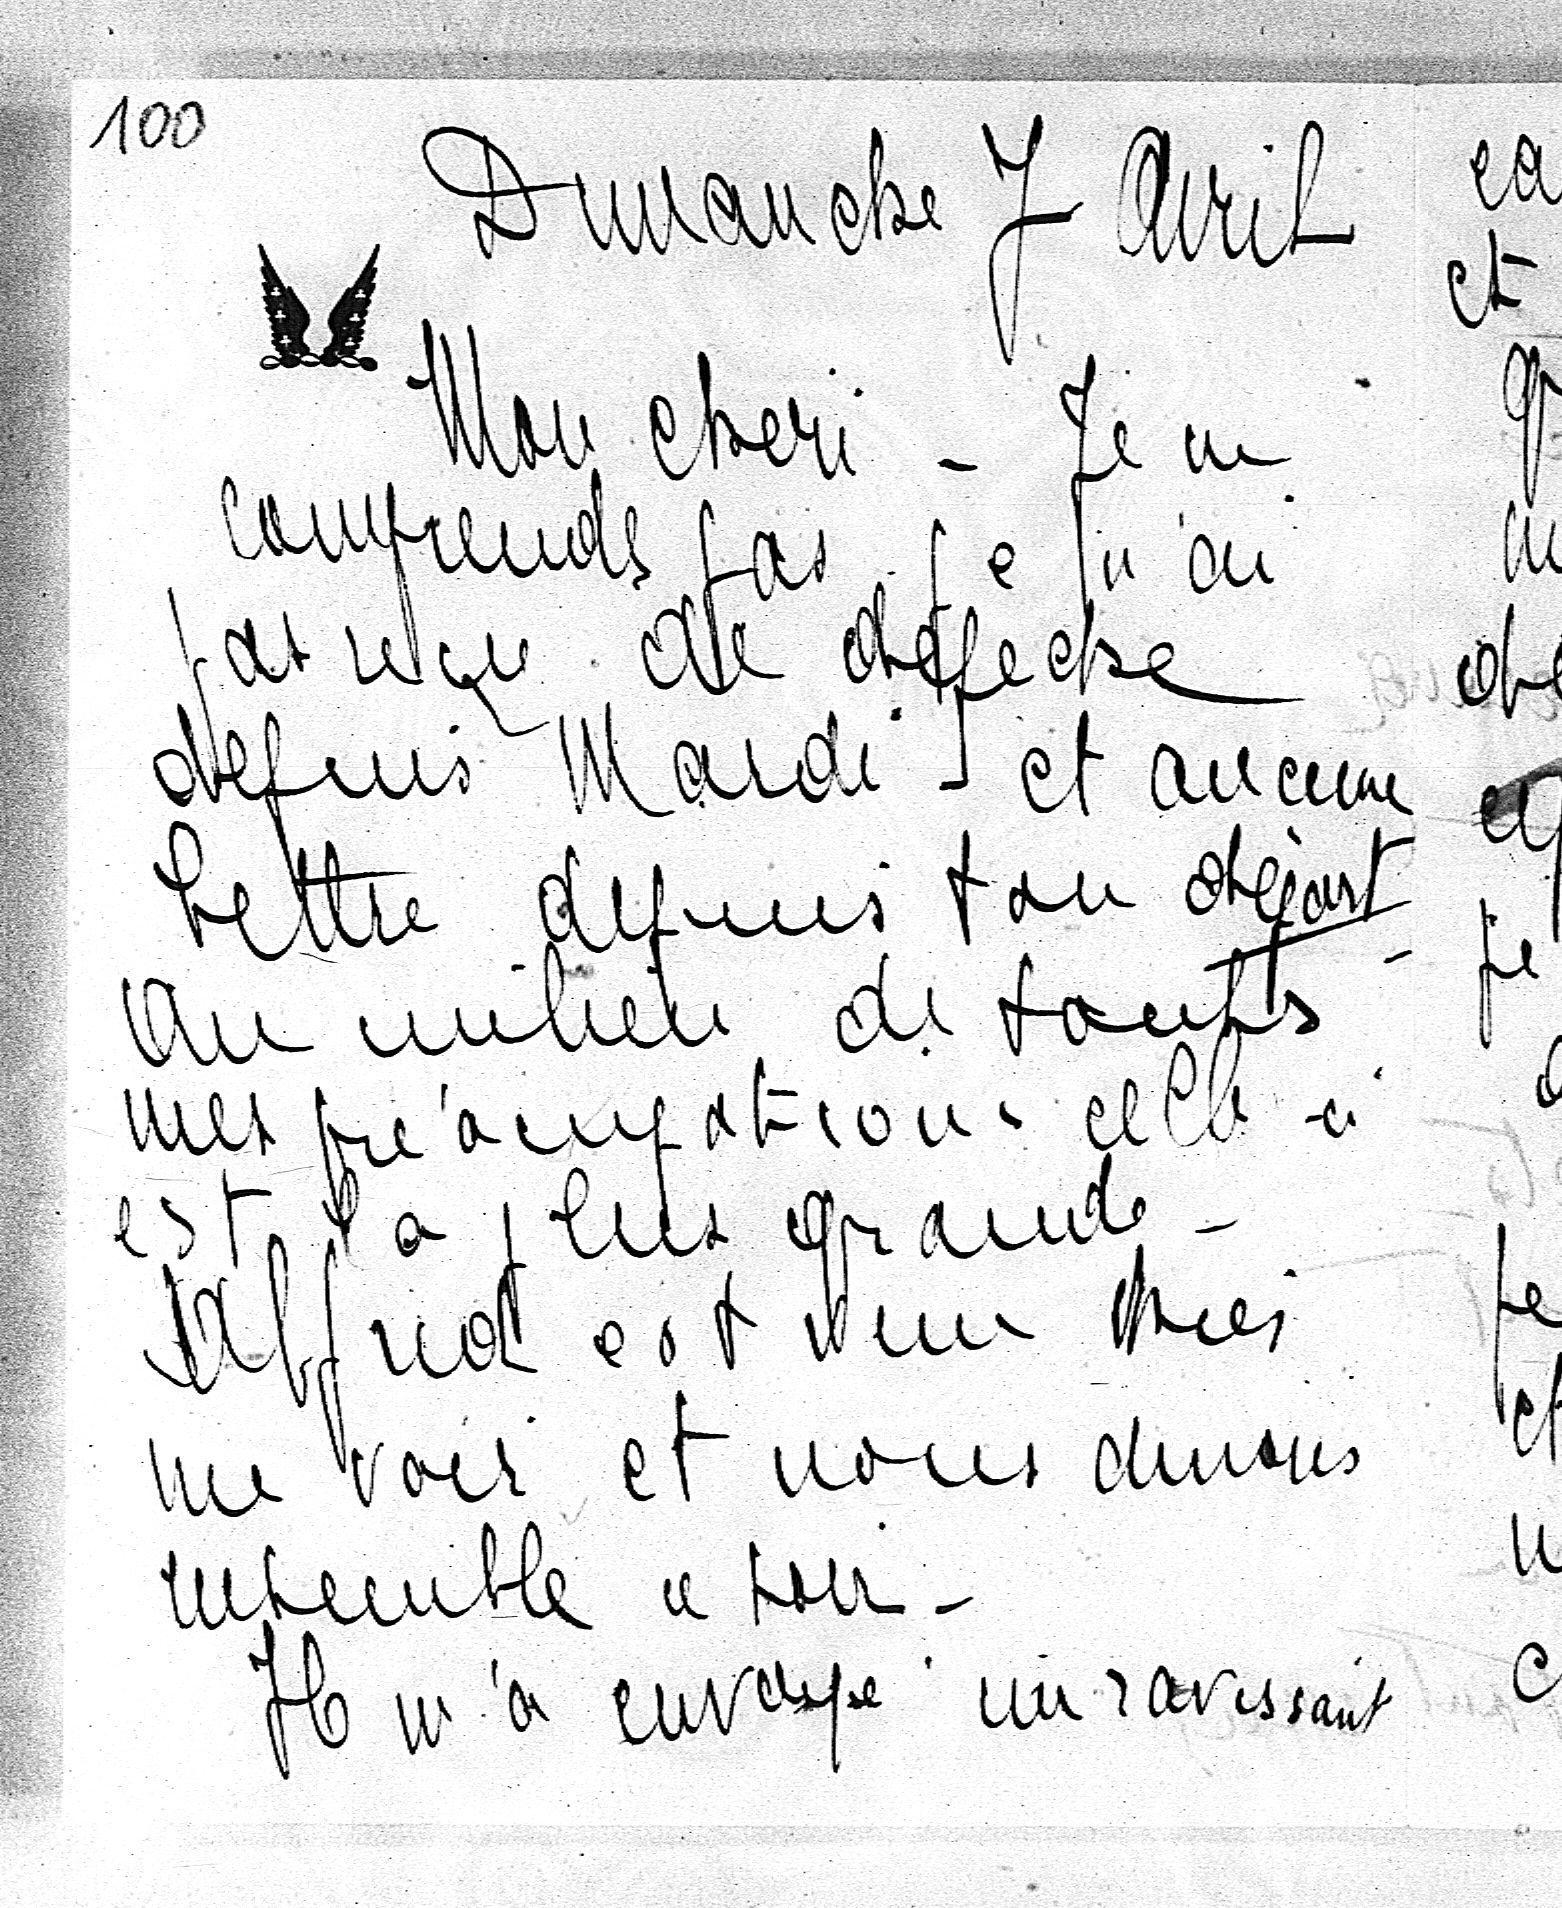 100
Dimanche 7 Avril
Mon cheri - Je ne
comprends pas, je n'ai
pas reçu de depeche
depuis Mardi - et aucune
lettre depuis ton départ -
Au milieu de toutes
mes préoccupations celle-ci
est la plus grande -
Alfred est venu hier
me voir et nous dinons
ensemble ce soir -
Il m'a envoyé un ravissant
ca
et
je
je
et